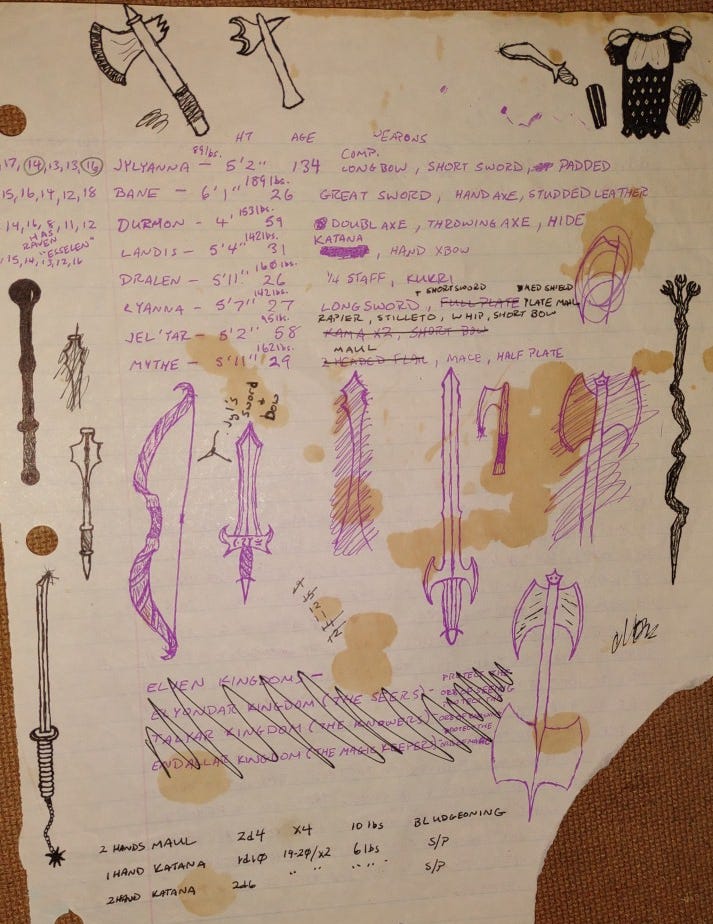 HT AGE WEAPONS
89lbs. COMP.
17, 14, 13, 13, 16 JYLYANNA — 5'2" 134 LONGBOW, SHORT SWORD, PADDED
189lbs.
15, 16, 14, 12, 18 BANE — 6'1" 26 GREAT SWORD, HAND AXE, STUDDED LEATHER
153lbs.
14, 16, 8, 11, 12 DURMON — 4' 59 DOUBLAXE, THROWING AXE, HIDE
HAS RAVEN "EKSELEN"
142lbs. KATANA
15, 14, 13, 12, 16 LANDIS — 5'4" 31 , HAND XBOW
160lbs.
DRALEN — 5'11" 26 1/4 STAFF, KUKRI
142lbs. + SHORTSWORD MED SHIELD
KYANNA — 5'7" 27 LONGSWORD, FULL PLATE PLATE MAIL
95lbs. RAPIER, STILLETO, WHIP, SHORT BOW
JEL'YAR — 5'2" 58 KAMA X2, SHORT BOW
162lbs. MAUL
MYTHE — 5'11" 29 2 HEADED FLAIL, MACE, HALF PLATE
Jyl's sword + bow
ELVEN KINGDOMS —
ELYONDAR KINGDOM (THE SEERS) — PROTECT THE ORB OF SEEING
TALYAR KINGDOM (THE KNOWERS) — PROTECT THE
ENDALLAE KINGDOM (THE MAGIC KEEPER) — PROTECT THE
2 HANDS MAUL 2d4 X4 10 lbs BLUDGEONING
1 HAND KATANA 1d10 19-20/x2 6 lbs S/P
2 HAND KATANA 2d6 " " " " S/P